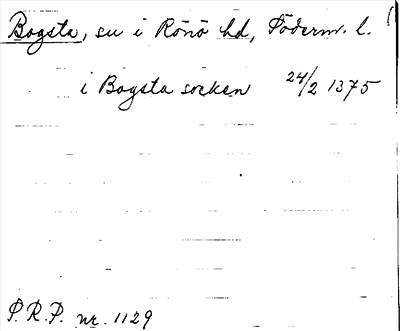 Bogsta, su i Rönö hd, Söderm. l.
i Bogsta socken 24/2 1375
P.R.P. nr. 1129